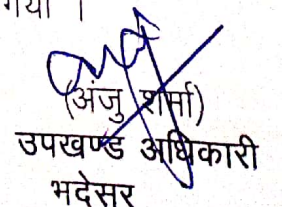 गया ।
(अंजु शर्मा)
उपखण्ड अधिकारी
भदेसर